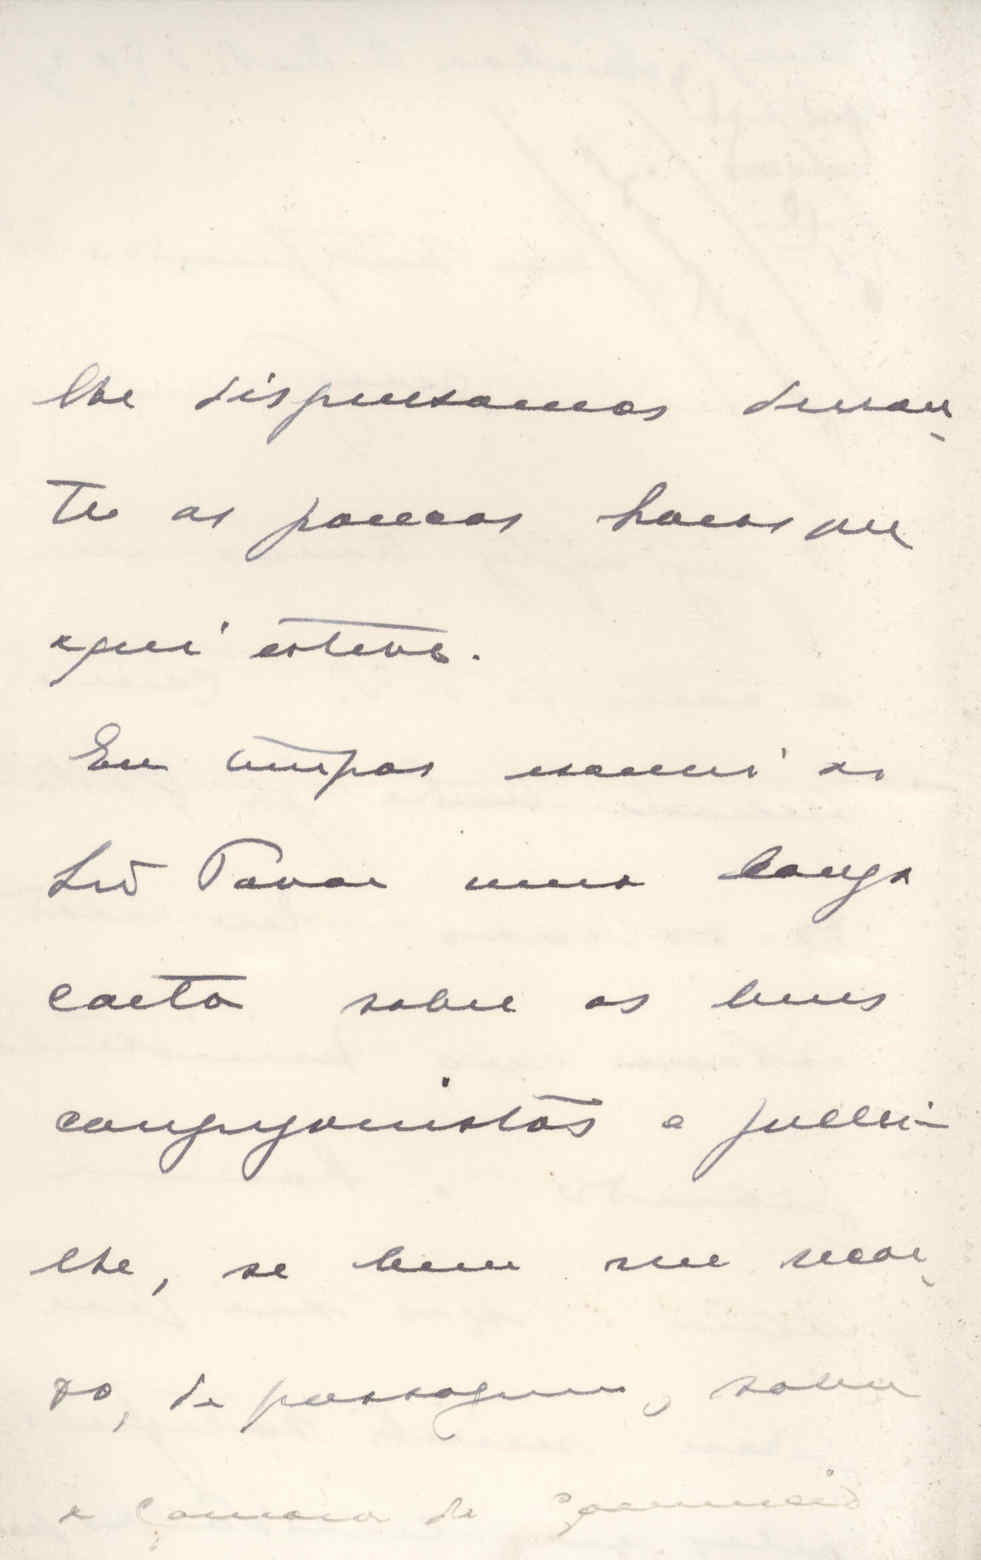 lhe dispensamos duran-
te as poucas horas que
aqui esteve.
Em tempos escrevi ao
Snr Pavão uma longa
carta sobre os bens
congregonistas e fallei-
lhe, se bem me recor-
do, de passagem, sobre
a Camara de Commercio